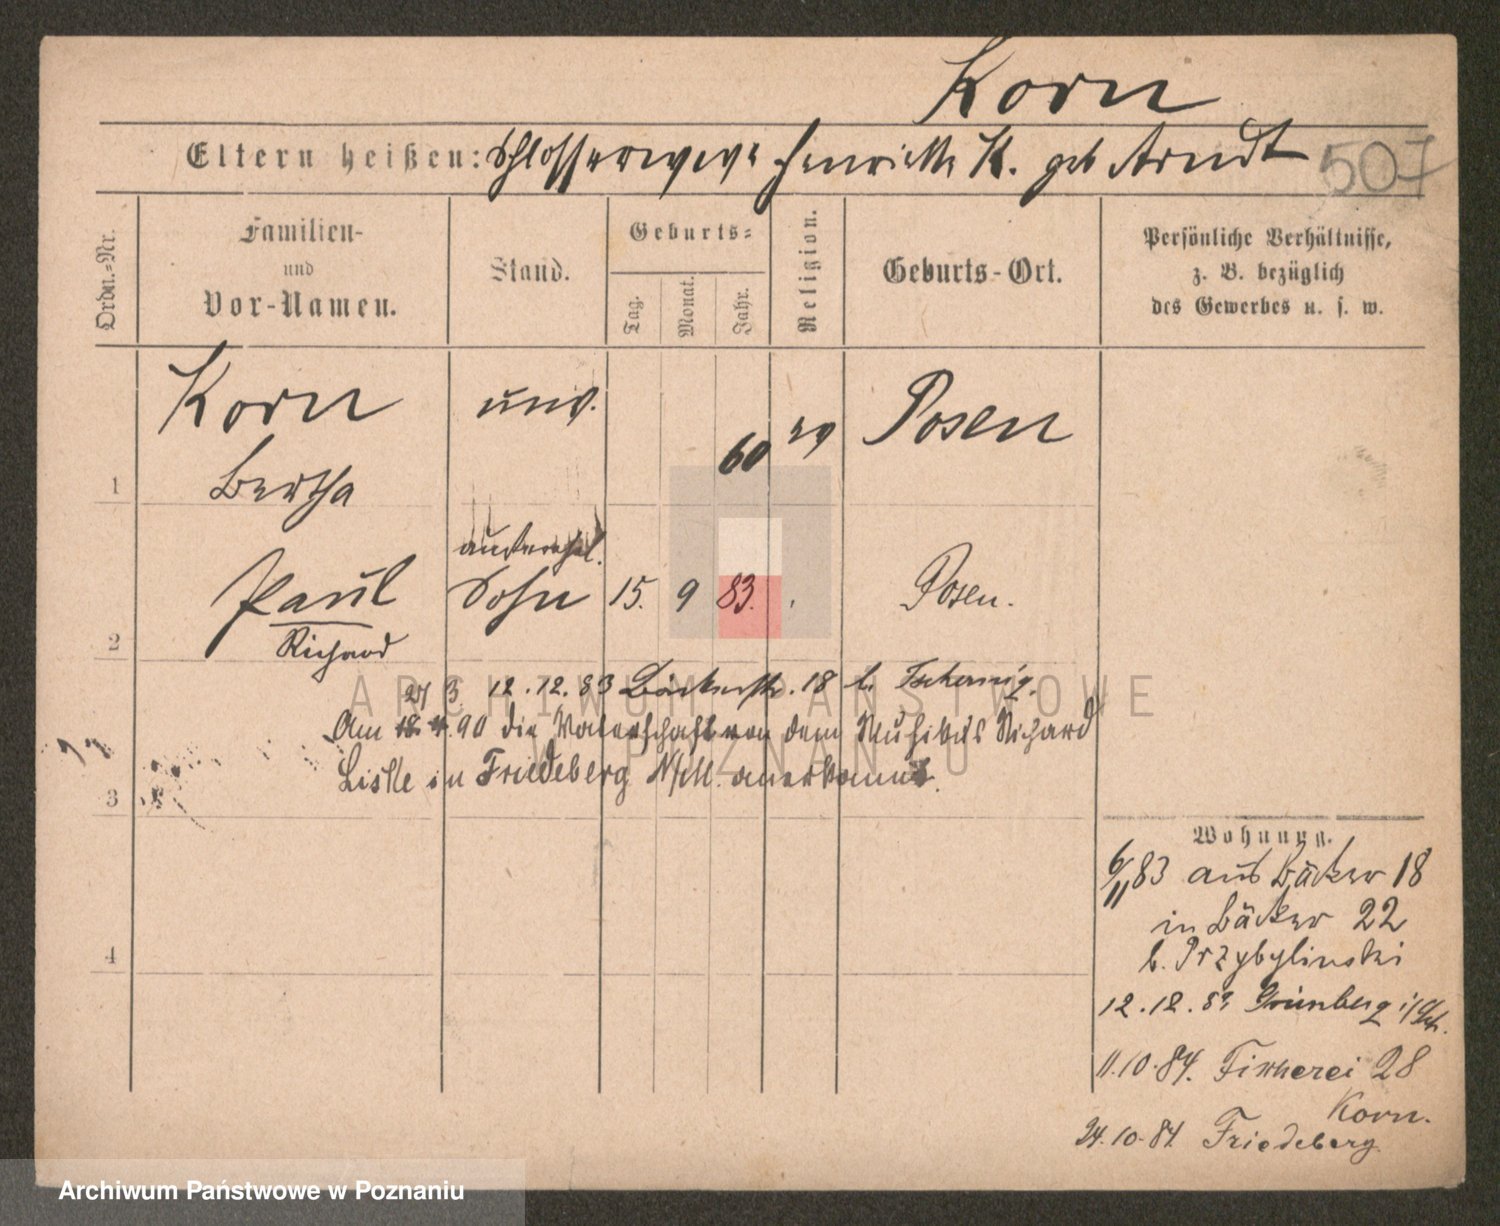 Korn
Eltern heißen: Schlosserwwe Henriette K. geb Arndt
507
Ordn.-Nr.
Familien-
und
Vor-Namen.
Stand.
Geburts-
Tag.
Monat.
Jahr.
Religion.
Geburts-Ort.
Persönliche Verhältnisse,
z. B. bezüglich
des Gewerbes u. s. w.
Korn unv. 60 ev Posen
1 Bertha
außerehel.
Paul Sohn 15. 9 83. Posen.
2 Richard
27 3 12.12.83 Bäckerstr. 18 b. Tschernig.
Am 18. 4. 90 die Vaterschaft von dem Musikus Richard
Liske in Friedeberg N/M. anerkannt.
3
4
Wohnung.
6/11 83 aus Bäcker 18
in Bäcker 22
b. Przybylinski
12.12.83 Grünberg i/Sch.
11.10.84. Fischerei 28
Korn.
24.10.84 Friedeberg
ARCHIWUM PAŃSTWOWE
W POZNANIU
Archiwum Państwowe w Poznaniu